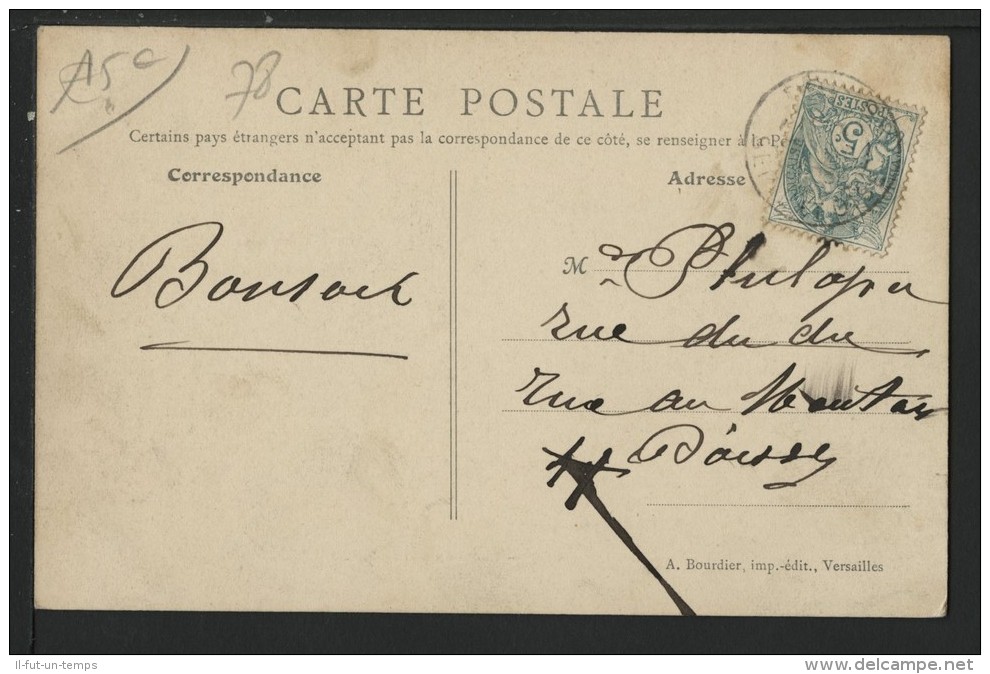 A5c
78
CARTE POSTALE
Certains pays étrangers n'acceptant pas la correspondance de ce côté, se renseigner à la
Correspondance
Adresse
POSTES
5c
Bonsoir
M
rue du du
rue au
Poissy
A. Bourdier, imp.-édit., Versailles
Il-fut-un-temps
delcampe.net